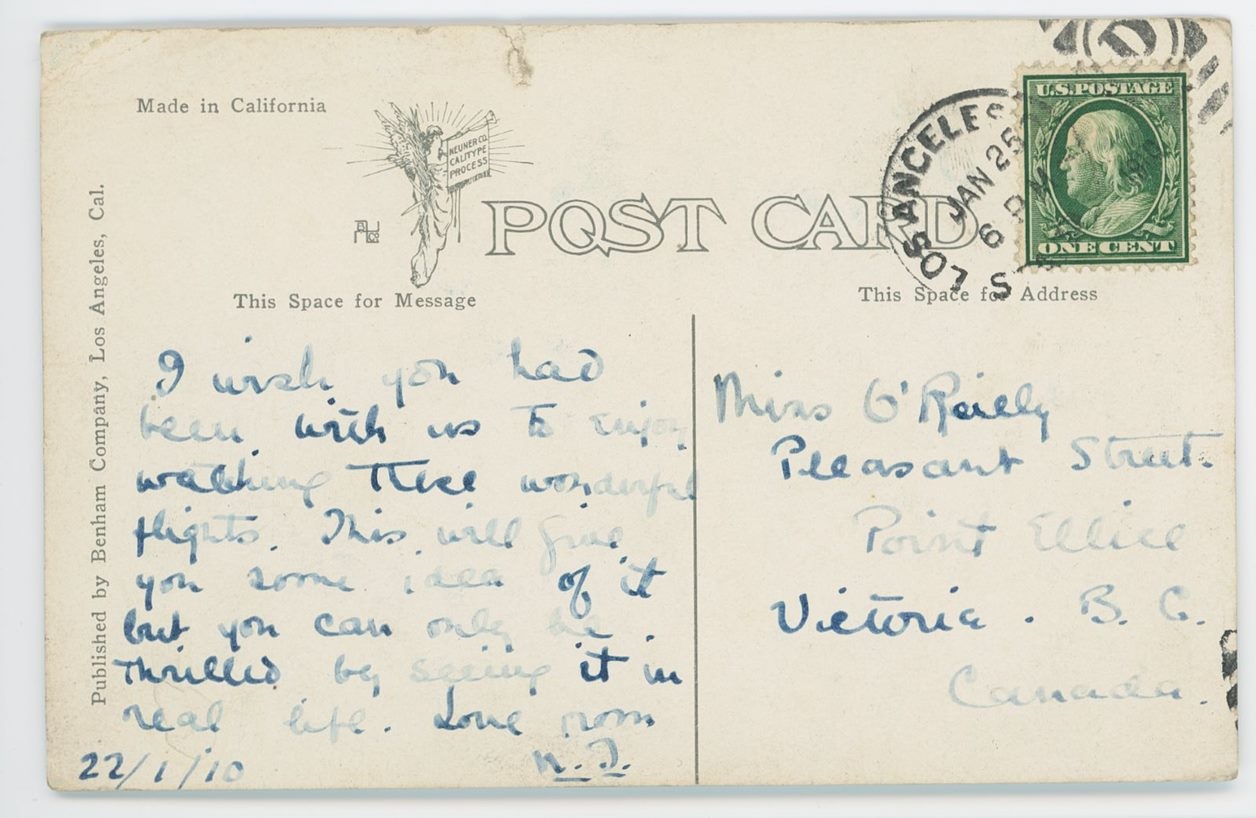 Made in California
NEUNER CO.
CALITYPE
PROCESS
POST CARD
This Space for Message
This Space for Address
Published by Benham Company, Los Angeles, Cal.
LOS ANGELES
JAN 25
6 P M
U.S. POSTAGE
ONE CENT
D
I wish you had
been with us to enjoy
watching these wonderful
flights. This will give
you some idea of it
but you can only be
thrilled by seeing it in
real life. Love from
22/1/10
Miss O'Reilly
Pleasant Street.
Point Ellice
Victoria. B. C.
Canada.